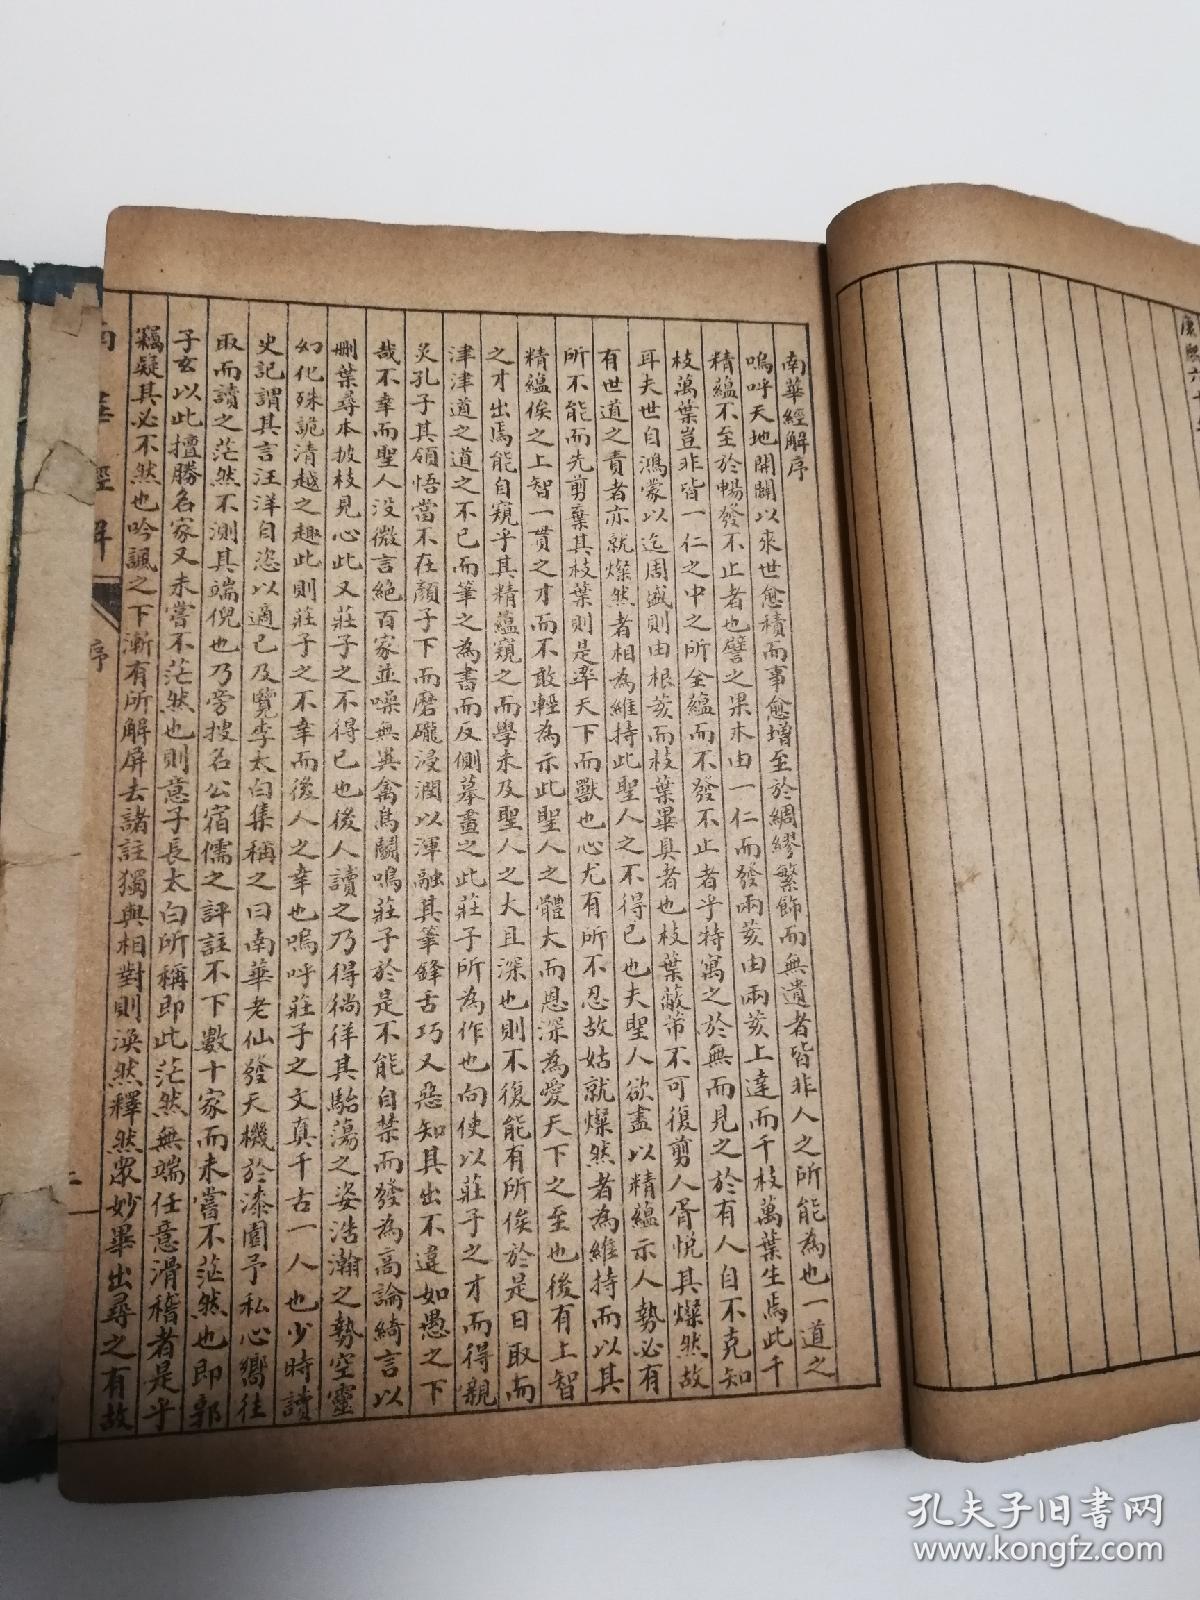 南華經解序
嗚呼天地開闢以來世愈積而事愈增至於綢繆繁飾而無遺者皆非人之所能為也一道之
精蘊不至於暢發不止者也譬之果木由一仁而發兩荄由兩荄上達而千枝萬葉生焉此千
枝萬葉豈非皆一仁之中之所全蘊而不發不止者乎特寓之於無而見之於有人自不克知
耳夫世自鴻蒙以迄周盛則由根荄而枝葉畢具者也枝葉蔽芾不可復剪人胥悅其燦然故
有世道之責者亦就燦然者相為維持此聖人之不得已也夫聖人欲盡以精蘊示人勢必有
所不能而先剪棄其枝葉則是率天下而獸也心尤有所不忍故姑就燦然者為維持而以其
精蘊俟之上智一貫之才而不敢輕為示此聖人之體大而思深為愛天下之至也後有上智
之才出焉能自窺乎其精蘊窺之而學未及聖人之大且深也則不復能有所俟於是日取而
津津道之道之不已而筆之為書而反側摹畫之此莊子所為作也向使以莊子之才而得親
炙孔子其領悟當不在顏子下而磨礲浸潤以渾融其筆鋒舌巧又惡知其出不違如愚之下
哉不幸而聖人沒微言絕百家並噪無異禽鳥鬭鳴莊子於是不能自禁而發為高論綺言以
刪葉尋本披枝見心此又莊子之不得已也後人讀之乃得徜徉其駘蕩之姿浩瀚之勢空靈
幻化殊詭清越之趣此則莊子之不幸而後人之幸也嗚呼莊子之文真千古一人也少時讀
史記謂其言汪洋自恣以適已及覽李太白集稱之曰南華老仙發天機於漆園予私心嚮往
取而讀之茫然不測其端倪也乃旁搜名公宿儒之評註不下數十家而未嘗不茫然也即郭
子玄以此擅勝名家又未嘗不茫然也則意子長太白所稱即此茫然無端任意滑稽者是乎
竊疑其必不然也吟諷之下漸有所解屏去諸註獨與相對則渙然釋然眾妙畢出尋之有故
華經解
序
孔夫子旧书网
www.kongfz.com